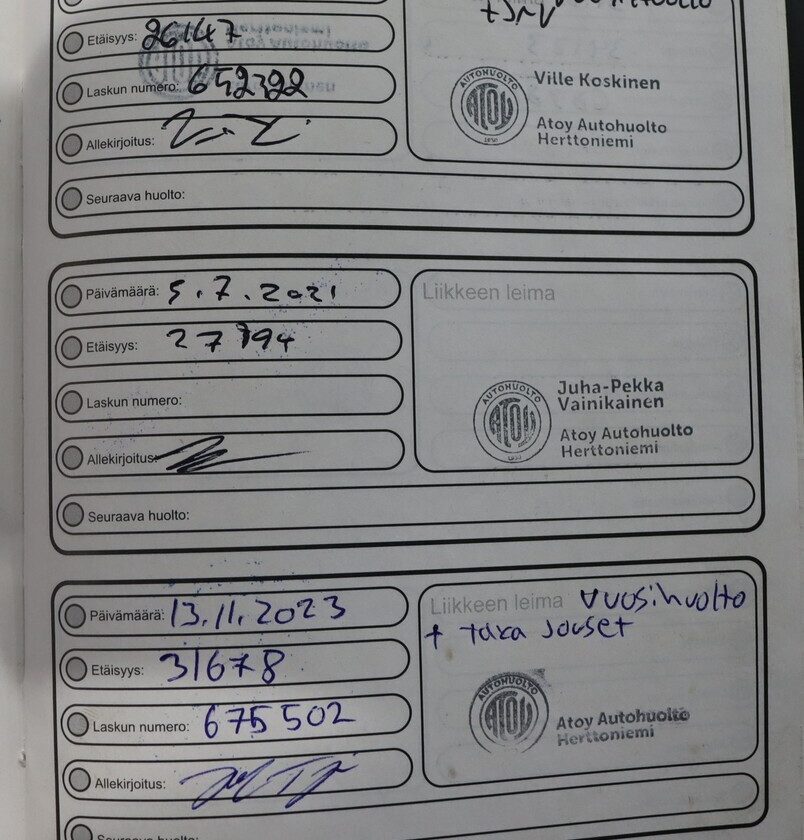 Etäisyys: 26147
Laskun numero: 652322
Allekirjoitus:
Seuraava huolto:
AUTOHUOLTO
ATOY
Ville Koskinen
Atoy Autohuolto
Herttoniemi
Päivämäärä: 5.7.2021
Etäisyys: 27794
Laskun numero:
Allekirjoitus:
Seuraava huolto:
Liikkeen leima
AUTOHUOLTO
ATOY
Juha-Pekka
Vainikainen
Atoy Autohuolto
Herttoniemi
Päivämäärä: 13.11.2023
Etäisyys: 31678
Laskun numero: 675502
Allekirjoitus:
Seuraava huolto:
Liikkeen leima vuosihuolto
+ taka jouset
AUTOHUOLTO
ATOY
Atoy Autohuolto
Herttoniemi